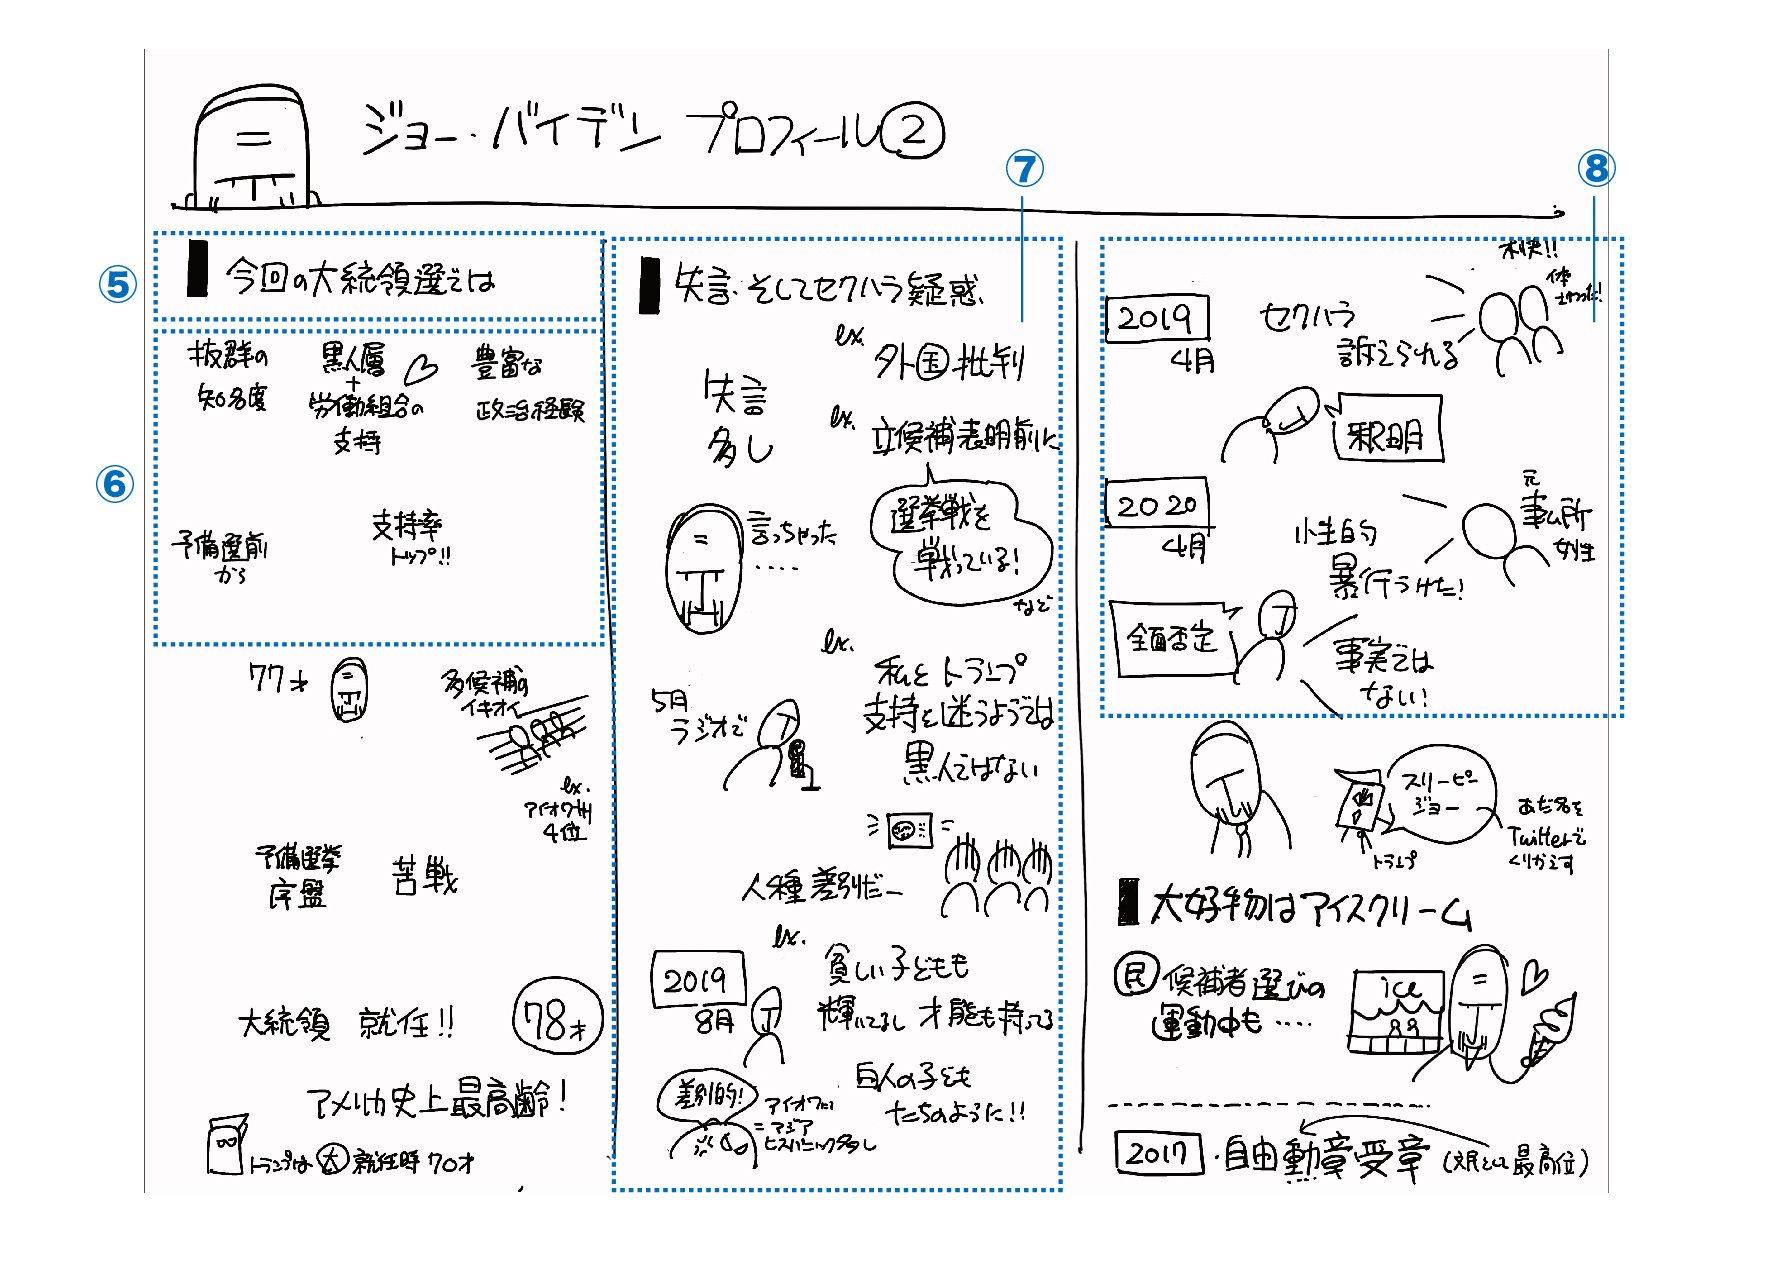 ジョー・バイデン プロフィール②
⑤
今回の大統領選では
⑥
抜群の
知名度
黒人層
+
労働組合の
支持
豊富な
政治経験
予備選前
から
支持率
トップ!!
77才
多候補の
イキオイ
ex.
アイオワ州
4位
予備選挙
序盤
苦戦
大統領 就任!!
78才
アメリカ史上最高齢!
トランプは㊅就任時70才
⑦
失言・そしてセクハラ疑惑、
失言
多し
ex.
外国批判
ex.
立候補表明前に
選挙戦を
戦っている!
など
言っちゃった
....
ex.
5月
ラジオで
私とトランプ
支持を迷うようでは
黒人ではない
人種差別だー
ex.
2019
8月
貧しい子どもも
輝いてるし 才能も持ってる
白人の子ども
たちのように!!
差別的!
アイオワに
=アジア
ヒスパニック多し
⑧
不快!!
体
さわった!
2019
4月
セクハラ
訴えられる
釈明
2020
4月
性的
暴行うけた!
元
事ム所
女性
全面否定
事実では
ない!
スリーピー
ジョー
トランプ
あだ名を
Twitterで
くりかえす
大好物はアイスクリーム
民 候補者選びの
運動中も....
ice
2017・自由勲章受章(文民として最高位)